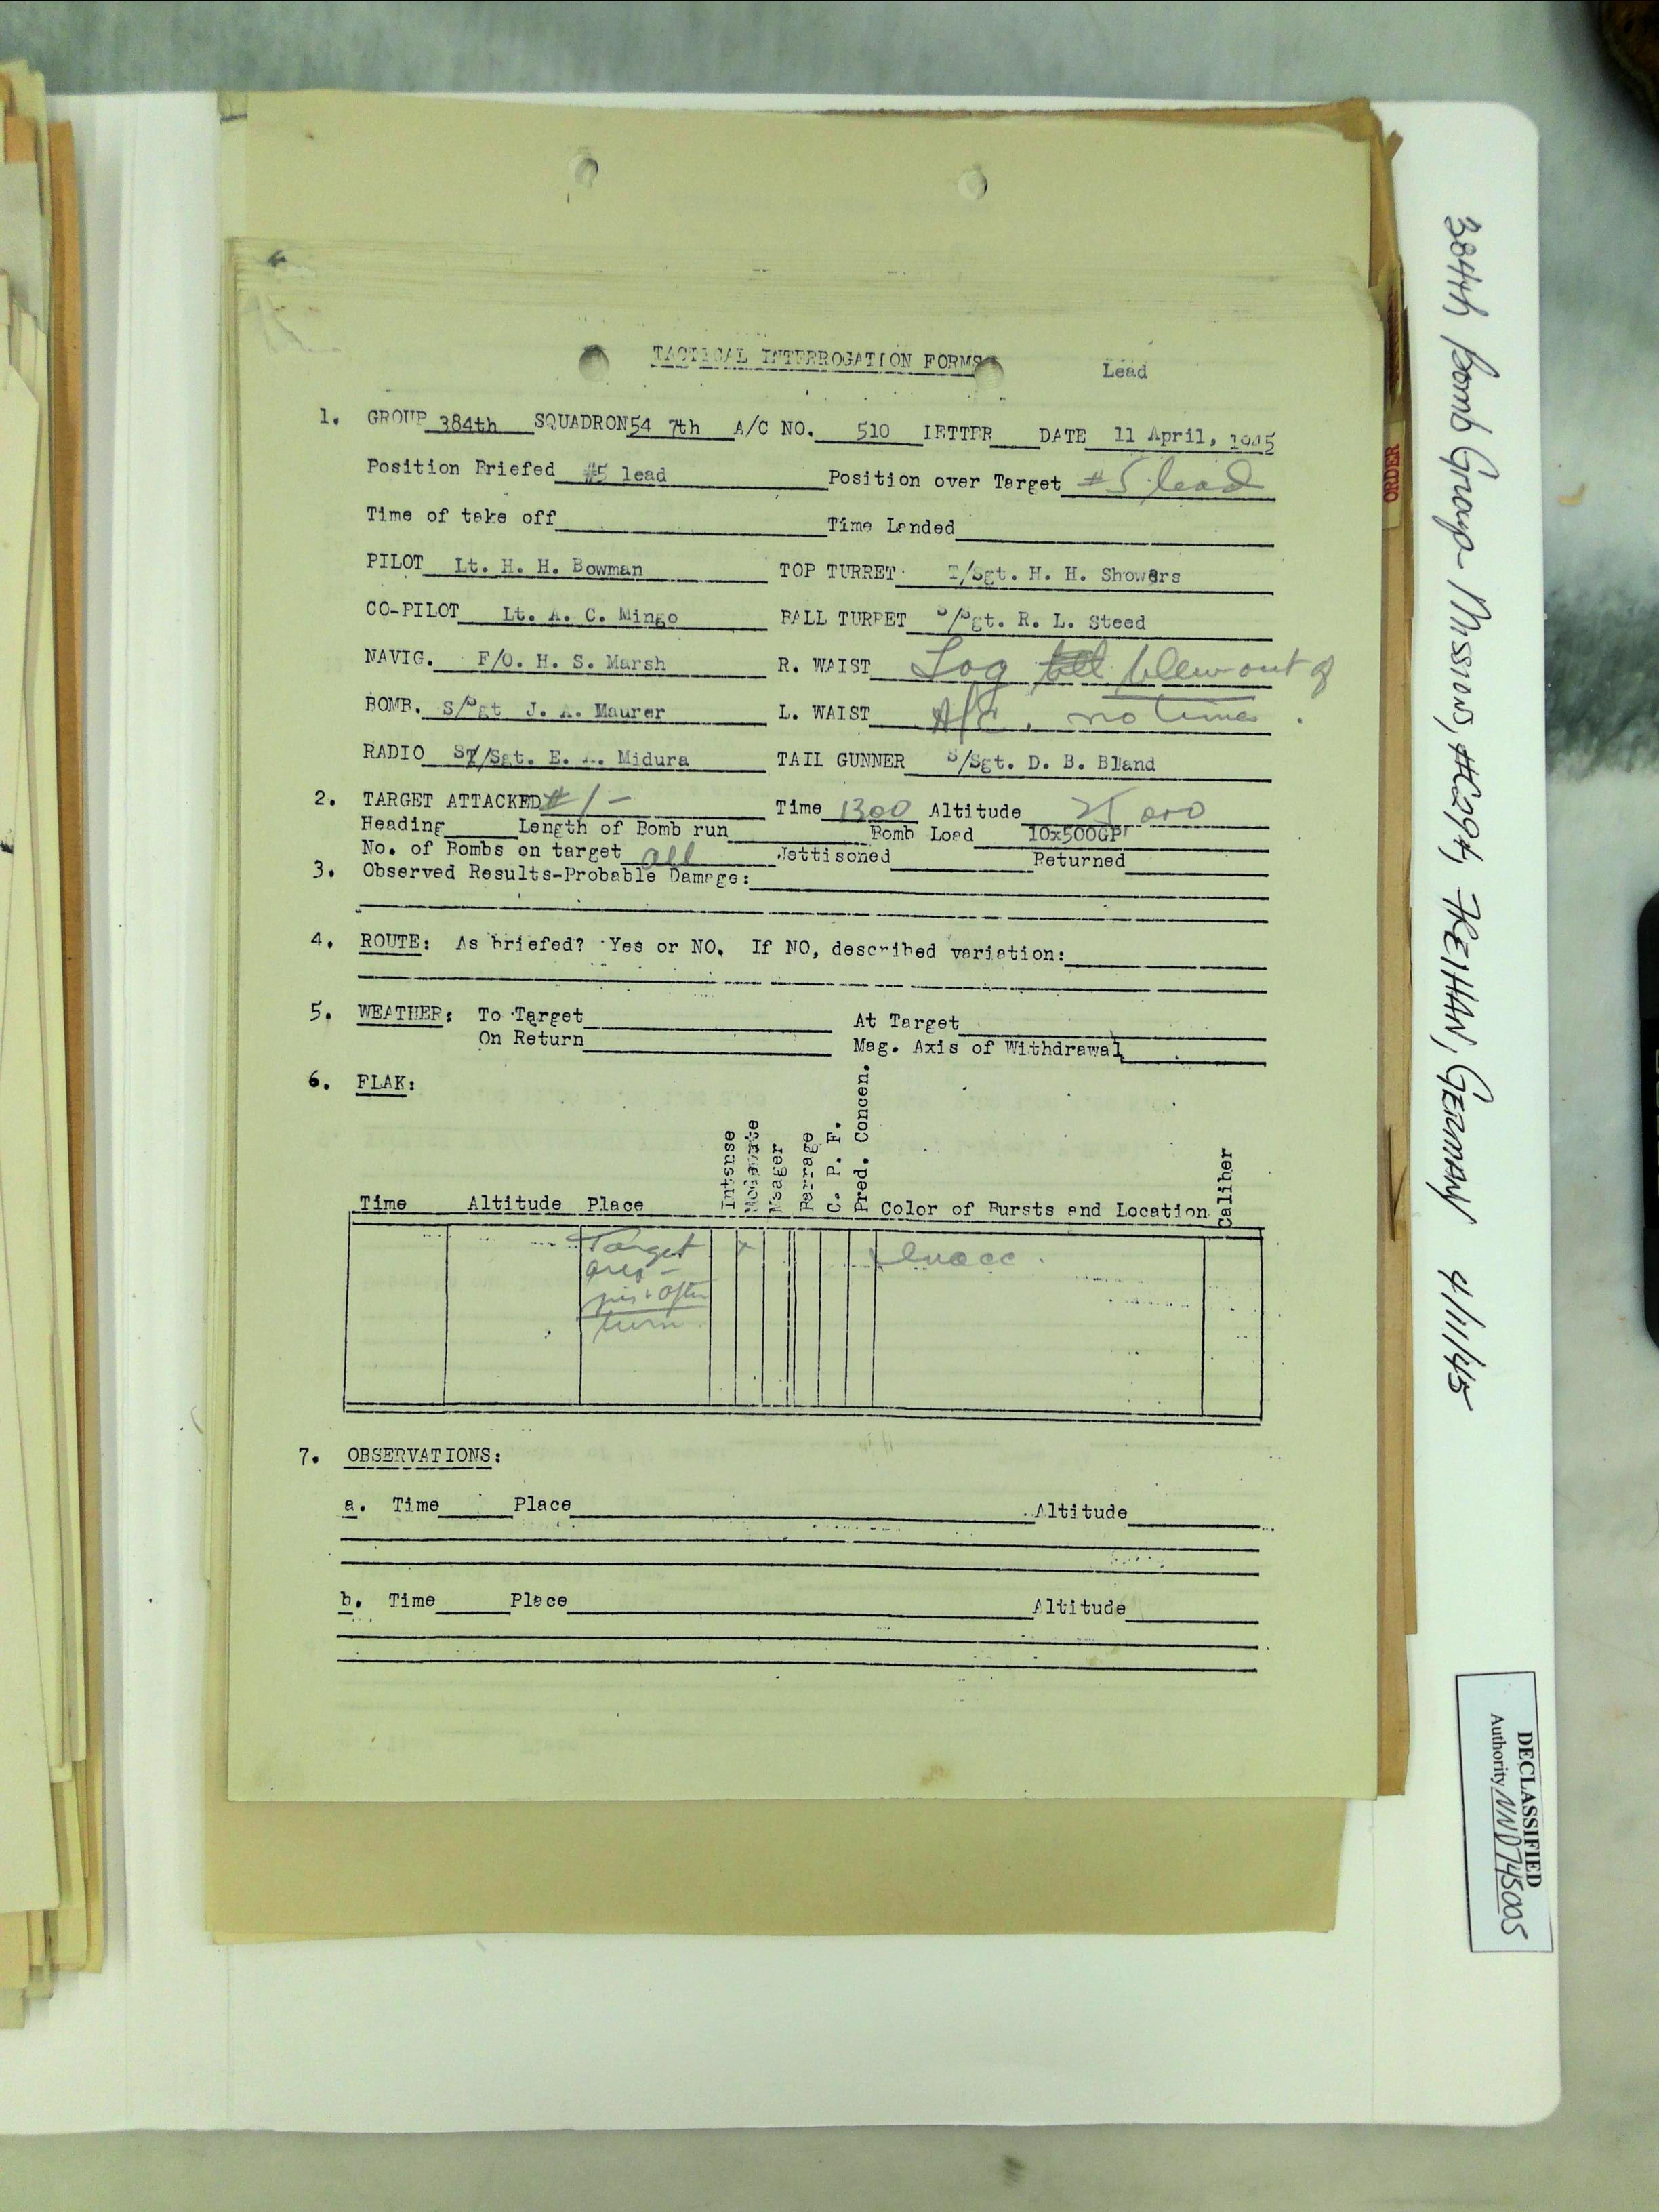 TACTICAL INTERROGATION FORMS
Lead
1. GROUP 384th SQUADRON 54 7th A/C NO. 510 LETTER DATE 11 April, 1945
Position Briefed #5 lead Position over Target #5 lead
Time of take off Time Landed
PILOT Lt. H. H. Bowman TOP TURRET T/Sgt. H. H. Showers
CO-PILOT Lt. A. C. Mingo BALL TURRET S/Sgt. R. L. Steed
NAVIG. F/O. H. S. Marsh R. WAIST Log blew out of
BOMB. S/Sgt J. A. Maurer L. WAIST A/C. no times.
RADIO ST/Sgt. E. A. Midura TAIL GUNNER S/Sgt. D. B. Bland
2. TARGET ATTACKED #1 - Time 1300 Altitude 25 000
Heading Length of Bomb run Bomb Load 10x500GP
No. of Bombs on target all Jettisoned Returned
3. Observed Results-Probable Damage:
4. ROUTE: As briefed? Yes or NO. If NO, described variation:
5. WEATHER: To Target At Target
On Return Mag. Axis of Withdrawal
6. FLAK:
Time Altitude Place Intense Moderate Meager Barrage C. P. F. Pred. Concen. Color of Bursts and Location Caliber
Target x Inacc.
area -
after
turn.
7. OBSERVATIONS:
a. Time Place Altitude
b. Time Place Altitude
ORDER
384th Bomb Group Missions, #C294, FREIHAN, GERMANY 4/11/45
DECLASSIFIED
Authority NND745005